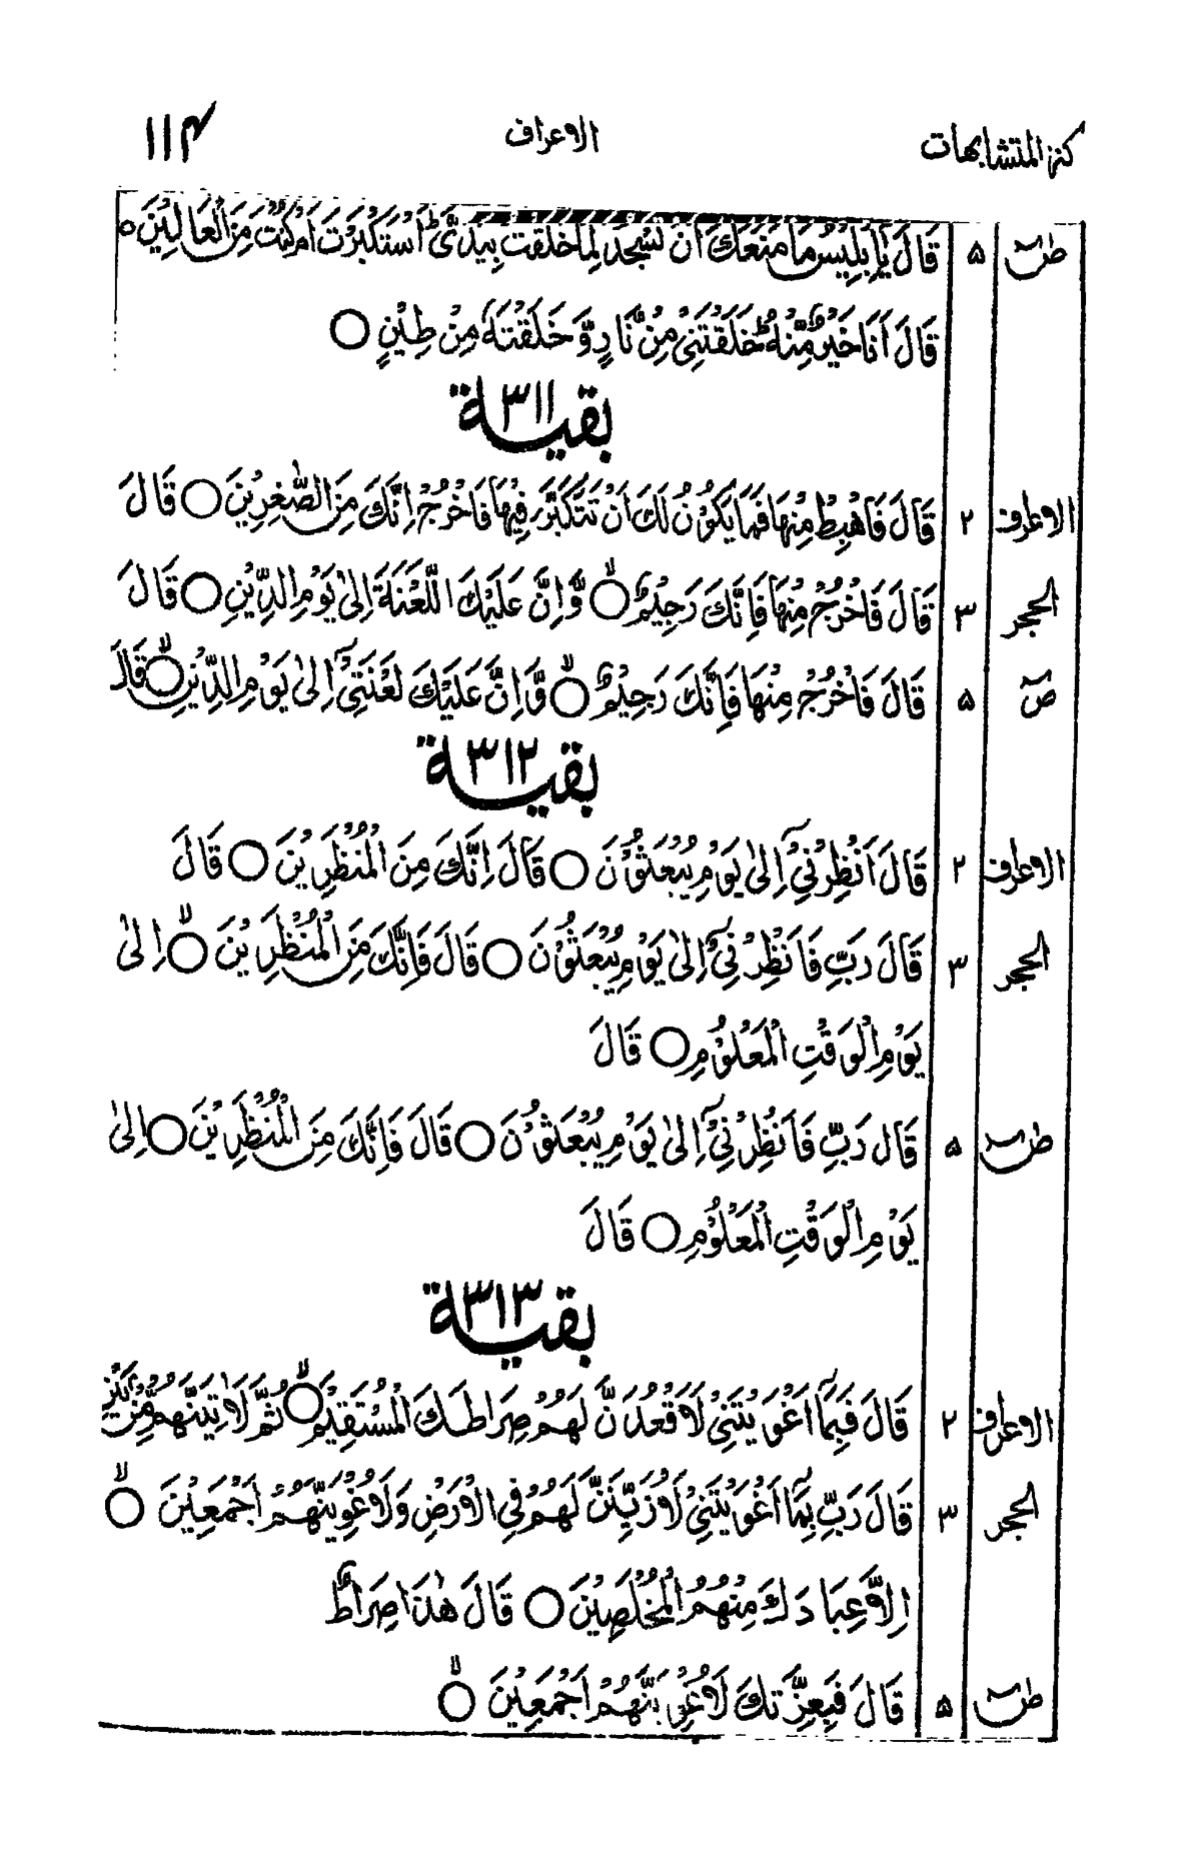 كنز المتشابهات
الاعراف
١١٤
صٓ ۵ قَالَ يَٰإِبْلِيْسُ مَا مَنَعَكَ اَنْ تَسْجُدَ لِمَا خَلَقْتُ بِيَدَىَّ ؕ اَسْتَكْبَرْتَ اَمْ كُنْتَ مِنَ الْعَالِيْنَ ○
قَالَ اَنَا خَيْرٌ مِّنْهُ ؕ خَلَقْتَنِيْ مِنْ نَّارٍ وَّ خَلَقْتَهٗ مِنْ طِيْنٍ ○
بقية ٣١١
الاعراف ٢ قَالَ فَاهْبِطْ مِنْهَا فَمَا يَكُوْنُ لَكَ اَنْ تَتَكَبَّرَ فِيْهَا فَاخْرُجْ اِنَّكَ مِنَ الصّٰغِرِيْنَ ○ قَالَ
الحجر ٣ قَالَ فَاخْرُجْ مِنْهَا فَاِنَّكَ رَجِيْمٌ ○ۙ وَّاِنَّ عَلَيْكَ اللَّعْنَةَ اِلٰى يَوْمِ الدِّيْنِ ○ قَالَ
صٓ ۵ قَالَ فَاخْرُجْ مِنْهَا فَاِنَّكَ رَجِيْمٌ ○ۙ وَّاِنَّ عَلَيْكَ لَعْنَتِيْٓ اِلٰى يَوْمِ الدِّيْنِ ○ۙ قَالَ
بقية ٣١٢
الاعراف ٢ قَالَ اَنْظِرْنِيْٓ اِلٰى يَوْمِ يُبْعَثُوْنَ ○ قَالَ اِنَّكَ مِنَ الْمُنْظَرِيْنَ ○ قَالَ
الحجر ٣ قَالَ رَبِّ فَاَنْظِرْنِيْٓ اِلٰى يَوْمِ يُبْعَثُوْنَ ○ قَالَ فَاِنَّكَ مِنَ الْمُنْظَرِيْنَ ○ۙ اِلٰى
يَوْمِ الْوَقْتِ الْمَعْلُوْمِ ○ قَالَ
صٓ ۵ قَالَ رَبِّ فَاَنْظِرْنِيْٓ اِلٰى يَوْمِ يُبْعَثُوْنَ ○ قَالَ فَاِنَّكَ مِنَ الْمُنْظَرِيْنَ ○ اِلٰى
يَوْمِ الْوَقْتِ الْمَعْلُوْمِ ○ قَالَ
بقية ٣١٣
الاعراف ٢ قَالَ فَبِمَآ اَغْوَيْتَنِيْ لَاَقْعُدَنَّ لَهُمْ صِرَاطَكَ الْمُسْتَقِيْمَ ○ۙ ثُمَّ لَاٰتِيَنَّهُمْ مِّنْ بَيْنِ
الحجر ٣ قَالَ رَبِّ بِمَآ اَغْوَيْتَنِيْ لَاُزَيِّنَنَّ لَهُمْ فِى الْاَرْضِ وَلَاُغْوِيَنَّهُمْ اَجْمَعِيْنَ ○ۙ
اِلَّا عِبَادَكَ مِنْهُمُ الْمُخْلَصِيْنَ ○ قَالَ هٰذَا صِرَاطٌ
صٓ ۵ قَالَ فَبِعِزَّتِكَ لَاُغْوِيَنَّهُمْ اَجْمَعِيْنَ ○ۙ